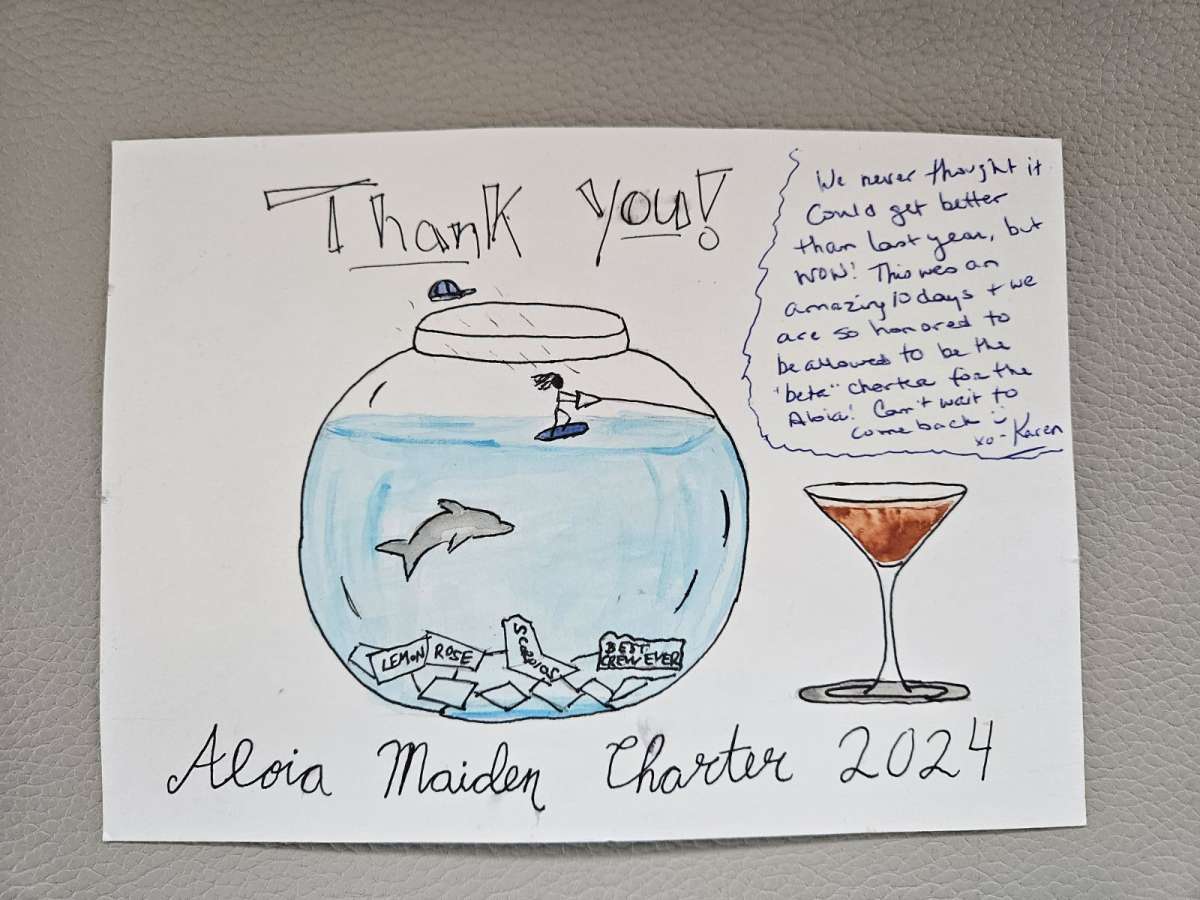 Thank You!
We never thought it
could get better
than last year, but
WOW! This was an
amazing 10 days + we
are so honored to
be allowed to be the
"beta" charter for the
Aloia! Can't wait to
come back :)
xo - Karen
LEMON ROSE
SCORPIOS
BEST
CREW EVER
Aloia Maiden Charter 2024